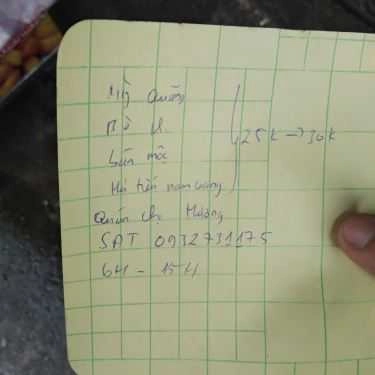 Mỳ Quảng
Bún mọc
Hủ tiếu nam vang
25k → 30k
Quán chị Hương
SĐT 0932731175
6H - 15H